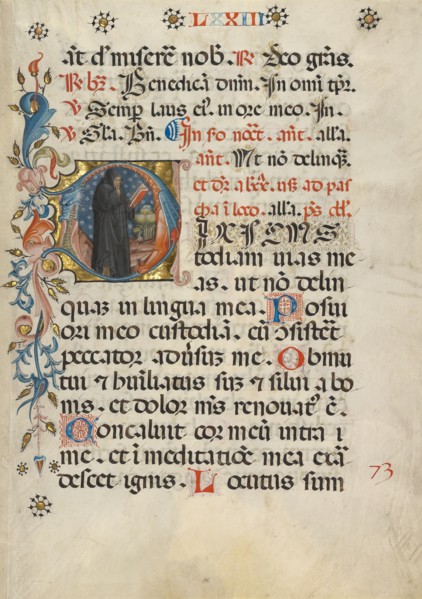 LXXIII
at̄ d' misere nob. R̃ Deo gr̄as.
R̃ br̄. Benedicā dn̄m. In omī tp̄r.
V̄ Semp laus ei'. in ore meo. In.
V̄ Gl̄a. In sc̄o noct̄. an̄t. all'a.
an̄t. Ut nō delinq̄.
et dr̄ a usq̄ ad pas
cha ī loco. all'a. p̄s
DIXI CUS
todiam uias me
as. ut nō delin
quaz in lingua mea. Posui
ori meo custodiā. cū ɔsistēt
peccator aduersuz me. Obmu
tui ⁊ humiliatus suz ⁊ silui a bo
nis. et dolor m̄s renouat' ē.
Concaluit cor meū intra i
me. et ī meditatiōe mea exar
descet ignis. Locutus sum
73